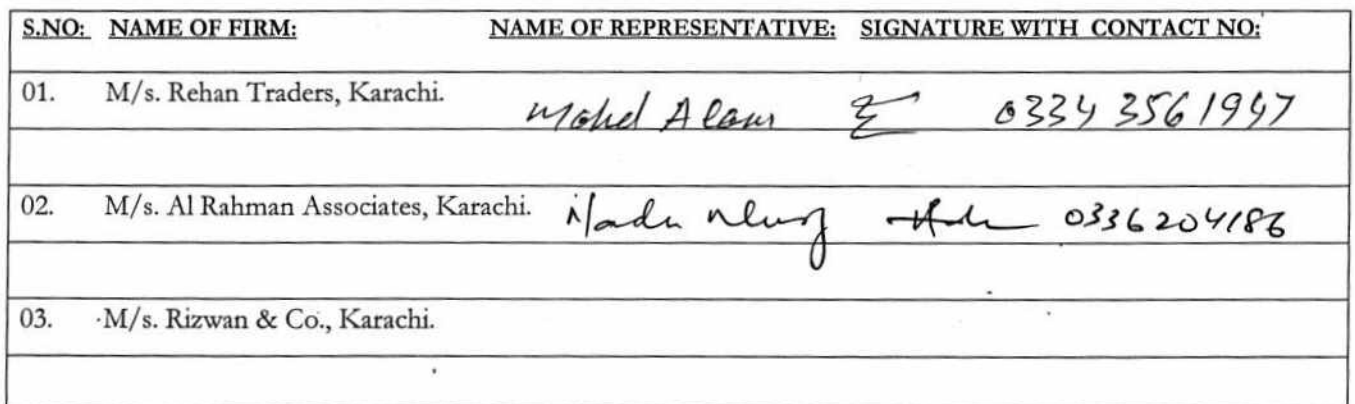 S.NO: NAME OF FIRM: NAME OF REPRESENTATIVE: SIGNATURE WITH CONTACT NO:
01. M/s. Rehan Traders, Karachi. Mohd Alam 0334 3561947
02. M/s. Al Rahman Associates, Karachi. 0336204186
03. M/s. Rizwan & Co., Karachi.